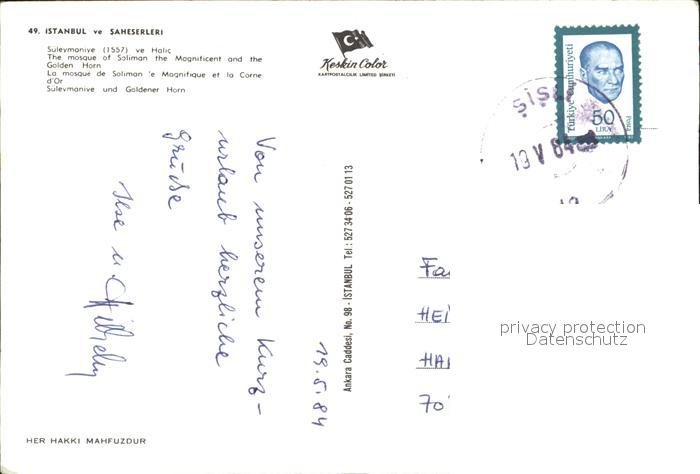 49. İSTANBUL ve ŞAHESERLERİ
Süleymaniye (1557) ve Haliç
The mosque of Soliman the Magnificent and the
Golden Horn
La mosqué de Soliman 'e Magnifique et la Corne
d'Or
Süleymaniye und Goldener Horn
Keskin Color
KARTPOSTALCILIK LIMITED ŞİRKETİ
Türkiye Cumhuriyeti
50
LİRA
ŞİŞLİ
19 V 84
19.5.84
Von unserem Kurz-
urlaub herzliche
Grüße
Ilse u.
Ankara Caddesi, No. 98 - İSTANBUL Tel : 527 34 06 - 527 01 13
Fa
HEI
HA
70
privacy protection
Datenschutz
HER HAKKI MAHFUZDUR